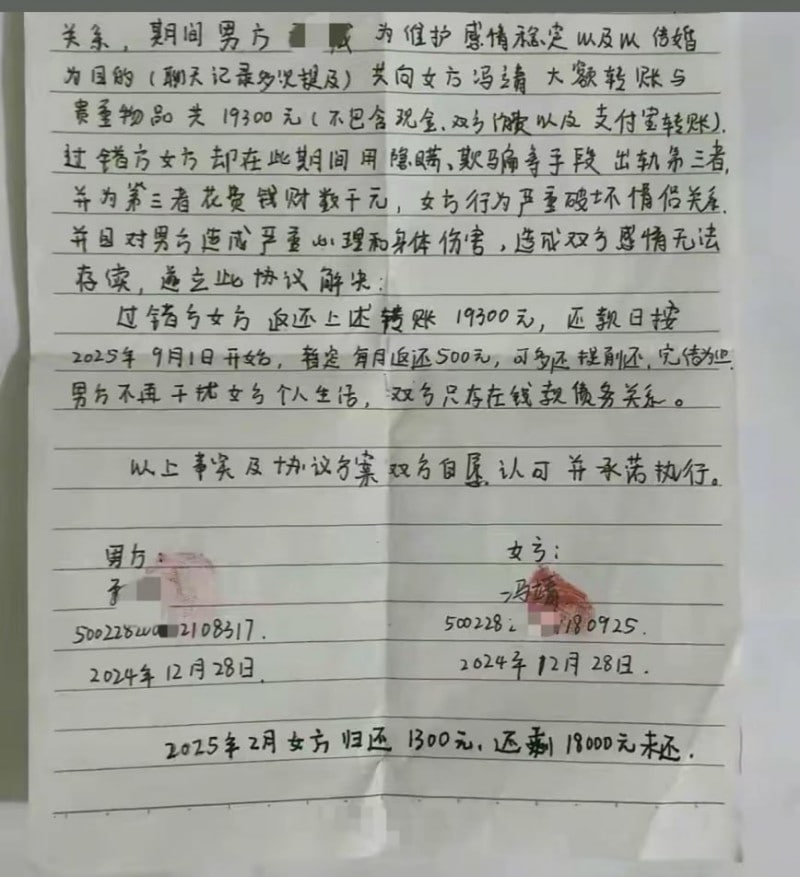 关系，期间男方 为维护感情稳定以及以结婚
为目的（聊天记录多次提及）共向女方冯靖大额转账与
贵重物品共19300元（不包含现金、双方消费以及支付宝转账）.
过错方女方却在此期间用隐瞒、欺骗等手段出轨第三者,
并为第三者花费钱财数千元，女方行为严重破坏情侣关系.
并且对男方造成严重心理和身体伤害，造成双方感情无法
存续，遂立此协议解决：
过错方女方返还上述转账19300元，还款日按
2025年9月1日开始，暂定每月返还500元，可多还提前还，完结为止.
男方不再干扰女方个人生活，双方只存在钱款债务关系。
以上事实及协议方案双方自愿认可并承诺执行。
男方： 女方：
冯靖
500228 2108317. 500228 180925.
2024年12月28日. 2024年12月28日.
2025年2月女方归还1300元，还剩18000元未还.